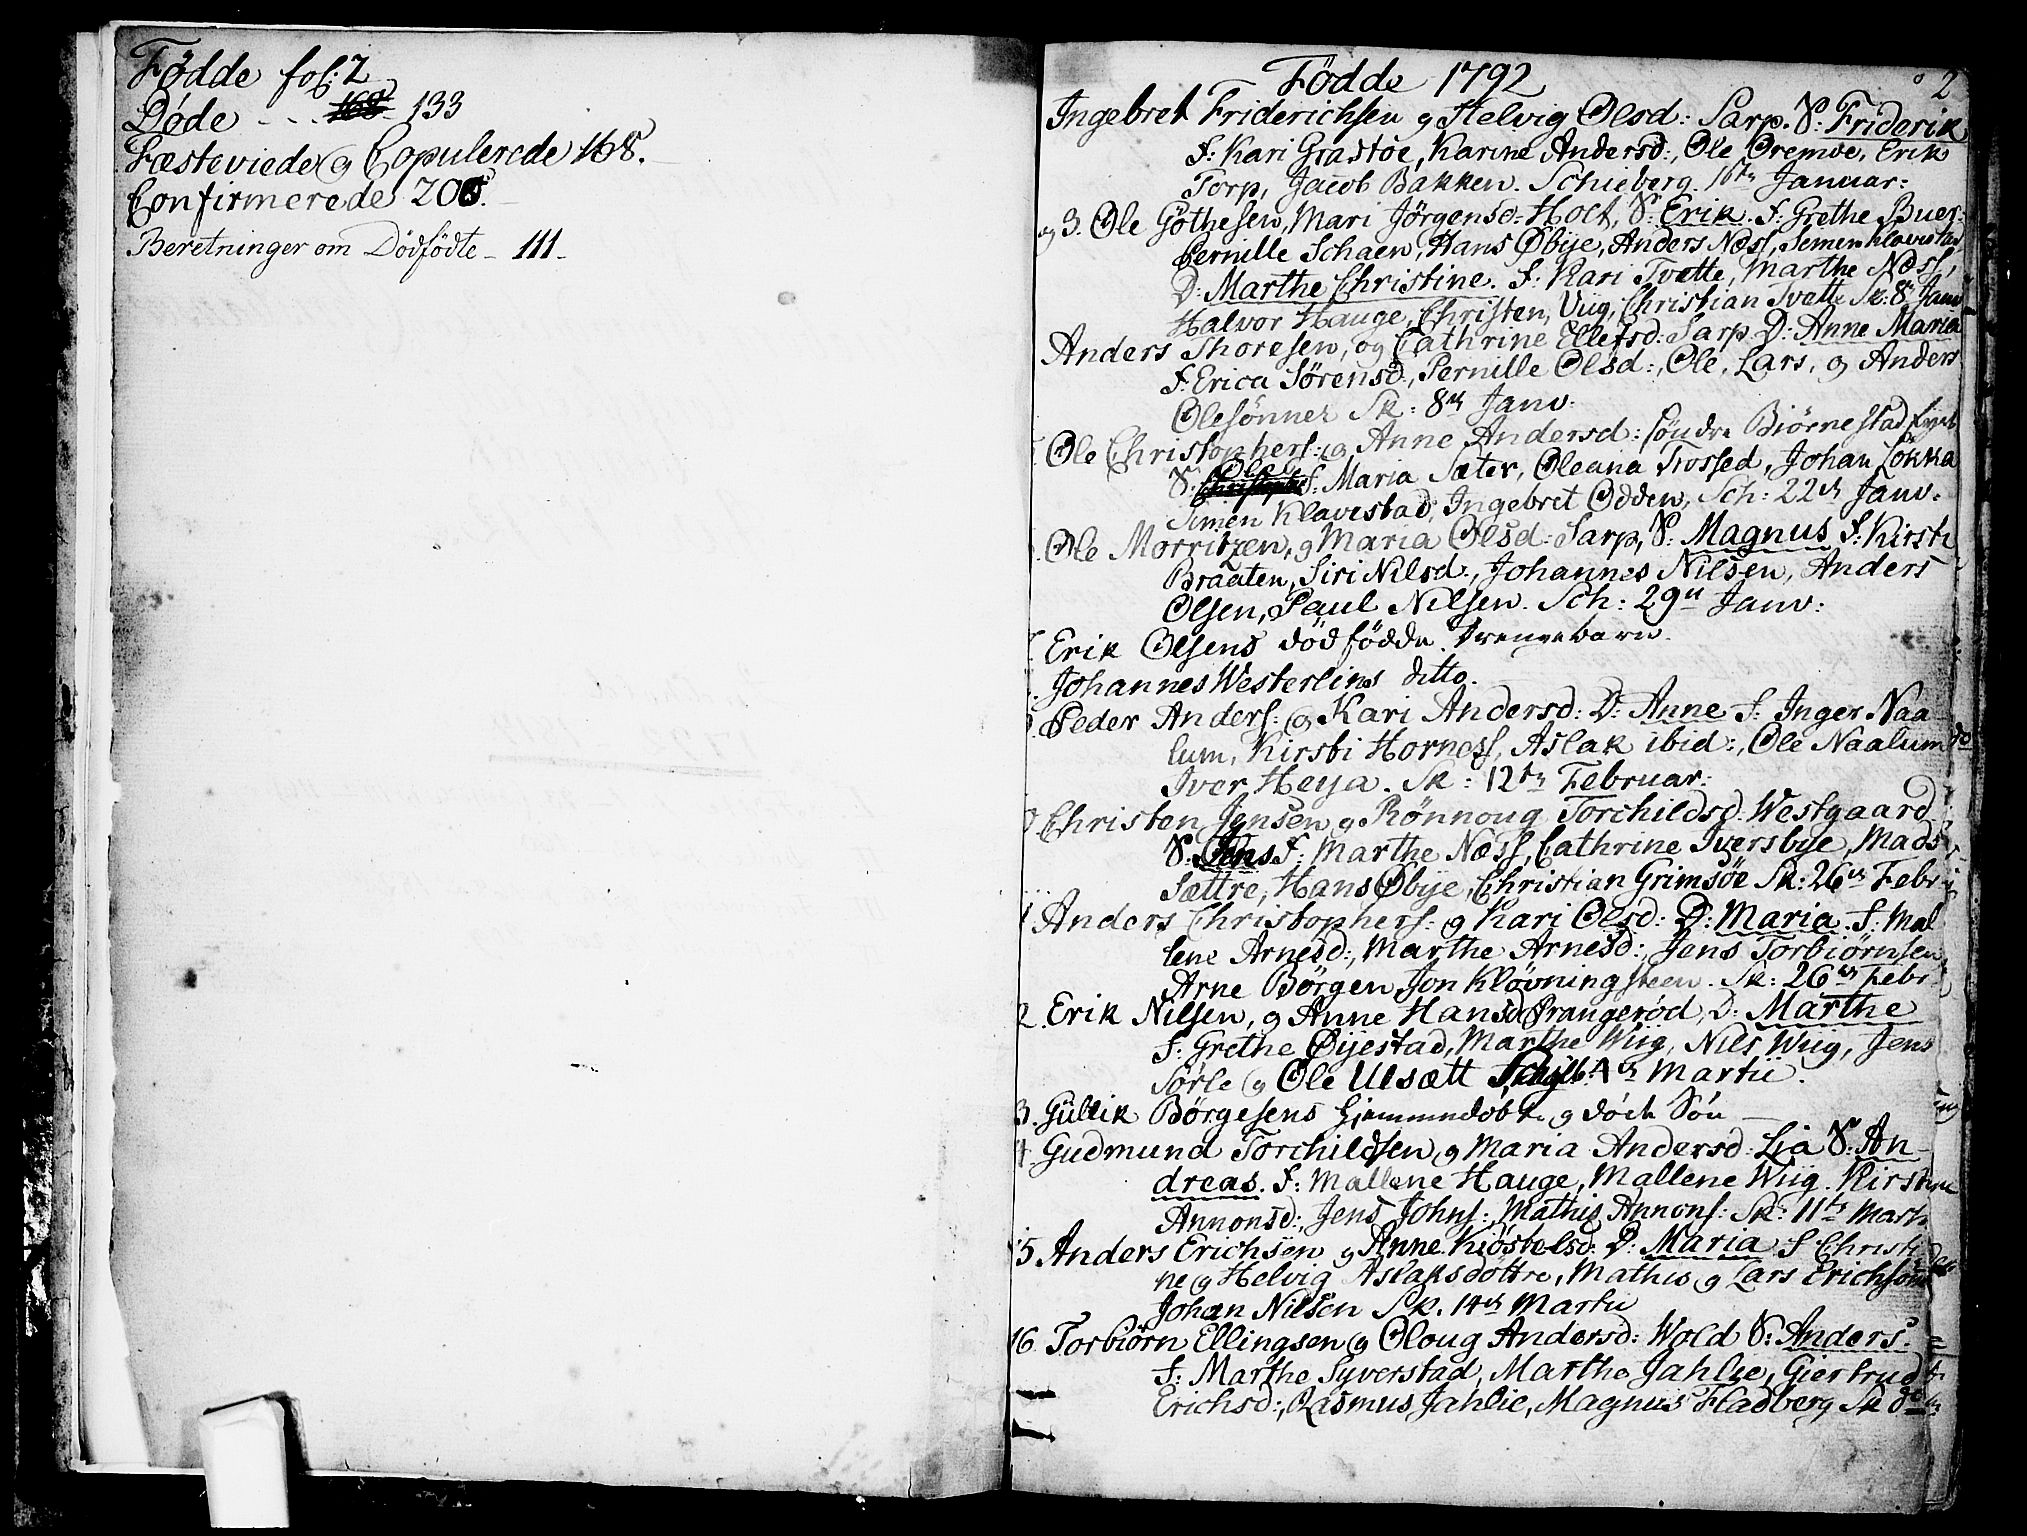 Fødde fol: 2
Døde - - - 168 133
Fæsteviede og Copulerede 168.
Confirmerede 205.
Beretninger om Dødfødte - 111 -
2
Fødde 1792
Ingebret Friderichsen og Helvig Olsd: Sarp. S: Friderik
F: Kari Grastøe, Karine Andersd:, Ole Oremoe, Erik
Torp, Jacob Bakken. Schieberg. 16ten Januar:
og 3. Ole Gøthesen, Mari Jørgensd. Holt, S: Erik. F: Grethe Buer
Pernille Schaen, Hans Øbye, Anders Næss, Semen Klavestad
D: Marthe Christine. F: Kari Tvette, Marthe Næss,
Halvor Hauge, Christen Viig, Christian Tvette Sk: 8de Janv
Anders Thoresen, og Cathrine Ellefsd: Sarp D: Anne Maria
F: Erica Sørensd, Pernille Olsd:, Ole, Lars, og Anders
Olesønner Sk: 8de Janv:
Ole Christophers: og Anne Andersd: søndre Biørnestad
S: Ole F: Maria Sæter, Oleana Trossed, Johan Løkka
Simen Klavestad, Ingebret Odden, Sch: 22de Janv.
Ole Morritzen, og Maria Olsd: Sarp, S: Magnus F: Kirsti
Braaten, Siri Nilsd:, Johannes Nilsen, Anders
Olsen, Paul Nilsen. Sch: 29de Janv:
Erik Olsens dødfødde Drengebarn.
Johannes Westerlins ditto.
Peder Anders: og Kari Andersd: D: Anne F: Inger Naa-
lum, Kirsti Horness, Aslak ibid:, Ole Naalum
Iver Heya. Sk: 12te Februar:
Christen Jensen og Rønnoug Torchildsd. Westgaard
S: Jens F: Marthe Næss, Cathrine Iversbye, Mads
Sættre, Hans Øbye, Christian Grimsøe Sk: 26de Febr
Anders Christophers: og Kari Olsd: D: Maria. F: Mal
lene Arnesd:, Marthe Arnesd:, Jens Torbiørnsen
Arne Børgen, Jon Kløvningsteen. Sk: 26de Febr
2. Erik Nilsen, og Anne Hansd Prangerød, D: Marthe
F: Grethe Øijestad, Marthe Wiig, Nils Wiig, Jens
Sørle og Ole Ulsætt 4de Martii.
3. Gullik Børgesens hjemmedøbte og døde Søn
4. Gudmund Torchildsen og Maria Andersd. Lia S: An-
dreas. F: Mallene Hauge, Mallene Wiig. Kirstine
Annonsd:, Jens Johns:, Mathis Annons: Sk: 11te Marti
15 Anders Erichsen og Anne Kiøstelsd: D: Maria F Christi
ne og Helvig Aslaksdøttre, Mathis og Lars Erichsøn
Johan Nilsen Sk. 14de Martii
16. Torbiørn Ellingsen og Oloug Andersd: Wold S: Anders.
F: Marthe Syverstad, Marthe Jahlie, Giertrud
Erichsd:, Rasmus Jahlie, Magnus Hadberg Sk do